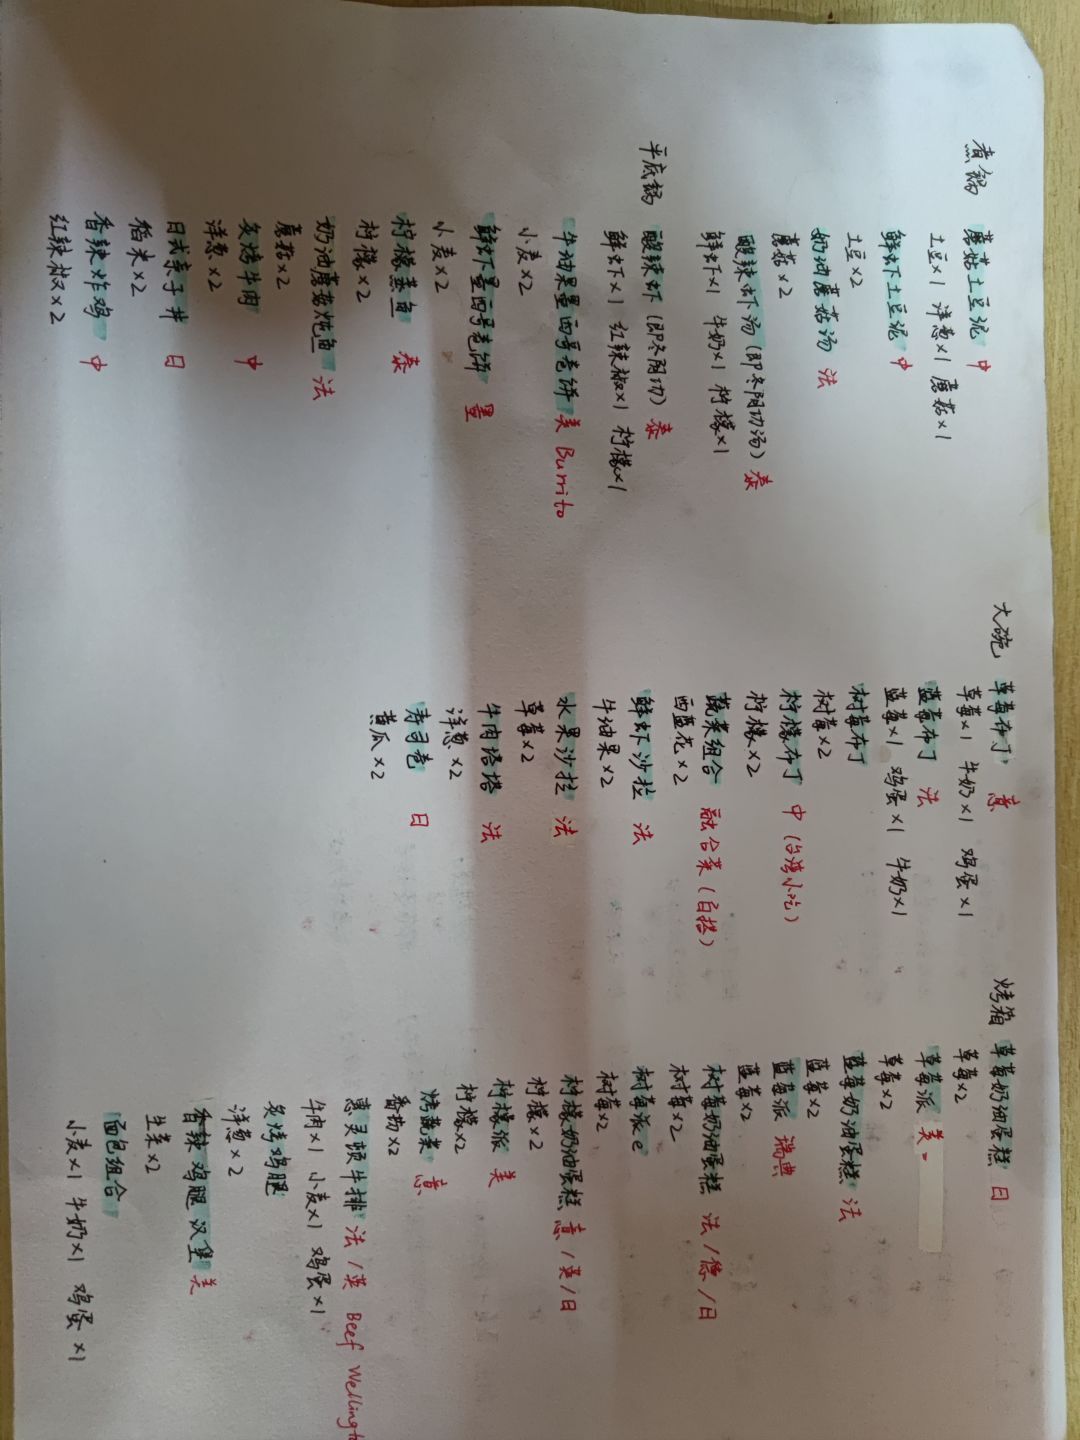 煮锅 蘑菇土豆泥 中
土豆×1 洋葱×1 蘑菇×1
鲜虾土豆泥 中
土豆×2
奶油蘑菇汤 法
蘑菇×2
酸辣虾汤(即冬阴功汤) 泰
鲜虾×1 牛奶×1 柠檬×1
平底锅 酸辣虾(即冬阴功) 泰
鲜虾×1 红辣椒×1 柠檬×1
牛油果墨西哥卷饼 美 Burrito
小麦×2
鲜虾墨西哥卷饼 墨
小麦×2
柠檬蒸鱼 泰
柠檬×2
奶油蘑菇炖鱼 法
蘑菇×2
炙烤牛肉 中
洋葱×2
日式亲子丼 日
稻米×2
香辣炸鸡 中
红辣椒×2
大碗 草莓布丁 意
草莓×1 牛奶×1 鸡蛋×1
蓝莓布丁 法
蓝莓×1 鸡蛋×1 牛奶×1
树莓布丁
树莓×2
柠檬布丁 中(台湾小吃)
柠檬×2
蔬菜组合 融合菜(自搭)
西蓝花×2
鲜虾沙拉 法
牛油果×2
水果沙拉 法
草莓×2
牛肉塔塔 法
洋葱×2
寿司卷 日
黄瓜×2
烤箱 草莓奶油蛋糕 日
草莓×2
草莓派 美
草莓×2
蓝莓奶油蛋糕 法
蓝莓×2
蓝莓派 瑞典
蓝莓×2
树莓奶油蛋糕 法/德/日
树莓×2
树莓派 e
树莓×2
柠檬奶油蛋糕 意/英/日
柠檬×2
柠檬派 美
柠檬×2
烤蔬菜 意
番茄×2
惠灵顿牛排 法/英 Beef Wellingt
牛肉×1 小麦×1 鸡蛋×1
炙烤鸡腿
洋葱×2
香辣鸡腿汉堡 美
生菜×2
面包组合
小麦×1 牛奶×1 鸡蛋×1